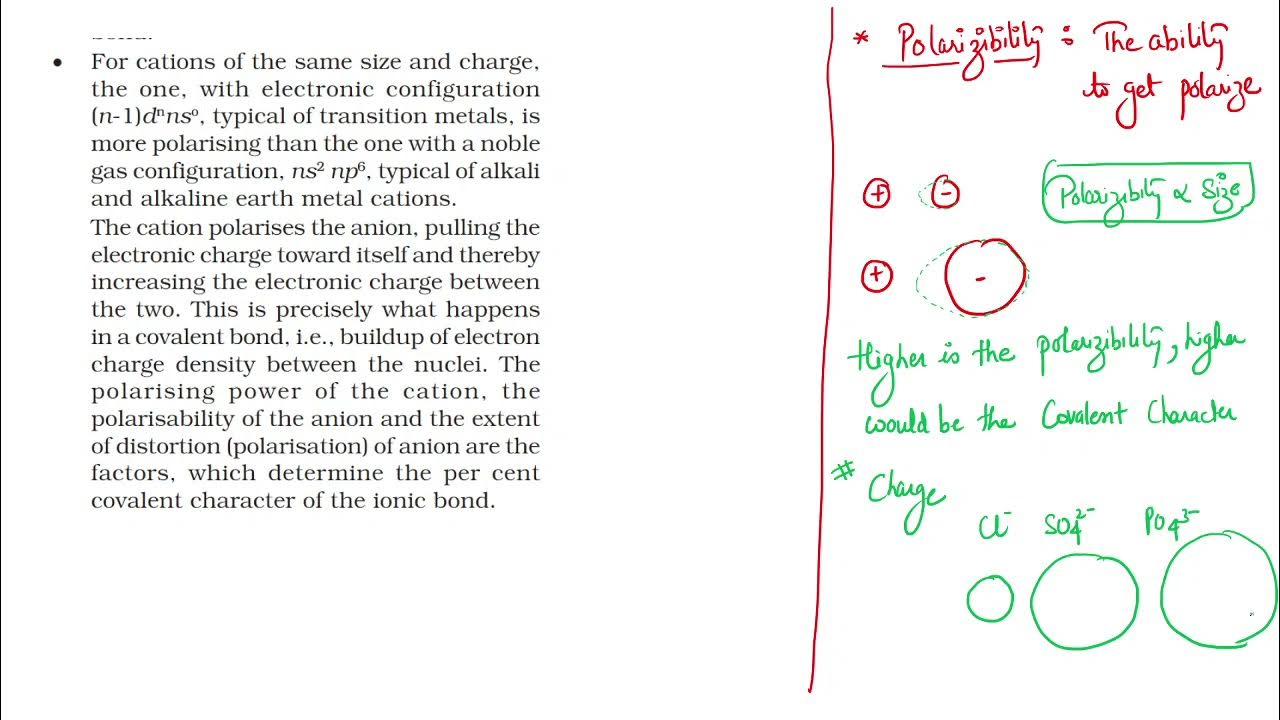 bond.
• For cations of the same size and charge,
the one, with electronic configuration
(n-1)dⁿnsº, typical of transition metals, is
more polarising than the one with a noble
gas configuration, ns² np⁶, typical of alkali
and alkaline earth metal cations.
The cation polarises the anion, pulling the
electronic charge toward itself and thereby
increasing the electronic charge between
the two. This is precisely what happens
in a covalent bond, i.e., buildup of electron
charge density between the nuclei. The
polarising power of the cation, the
polarisability of the anion and the extent
of distortion (polarisation) of anion are the
factors, which determine the per cent
covalent character of the ionic bond.
* Polarizibility : The ability
to get polarize
+ -
Polarizibility ∝ Size
+ -
Higher is the polarizibility, higher
would be the Covalent Character
# Charge
Cl⁻ SO₄²⁻ PO₄³⁻